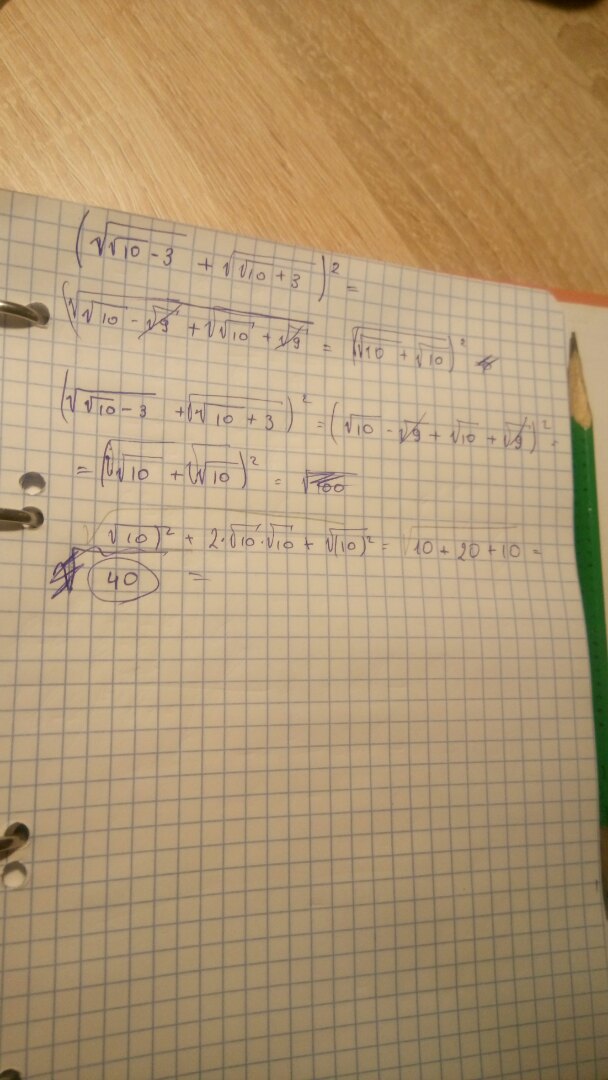 (√(√10 - 3) + √(√10 + 3))² =
(√(√10 - √9 + √√10 + √9) = (√(√10 + √10))²
(√(√10 - 3) + √(√10 + 3))² = (√10 - √9 + √10 + √9)² =
= (√√10 + √√10)² = √100
√(10)² + 2·√10·√10 + √(10)² = √10 + 20 + 10 =
40 =